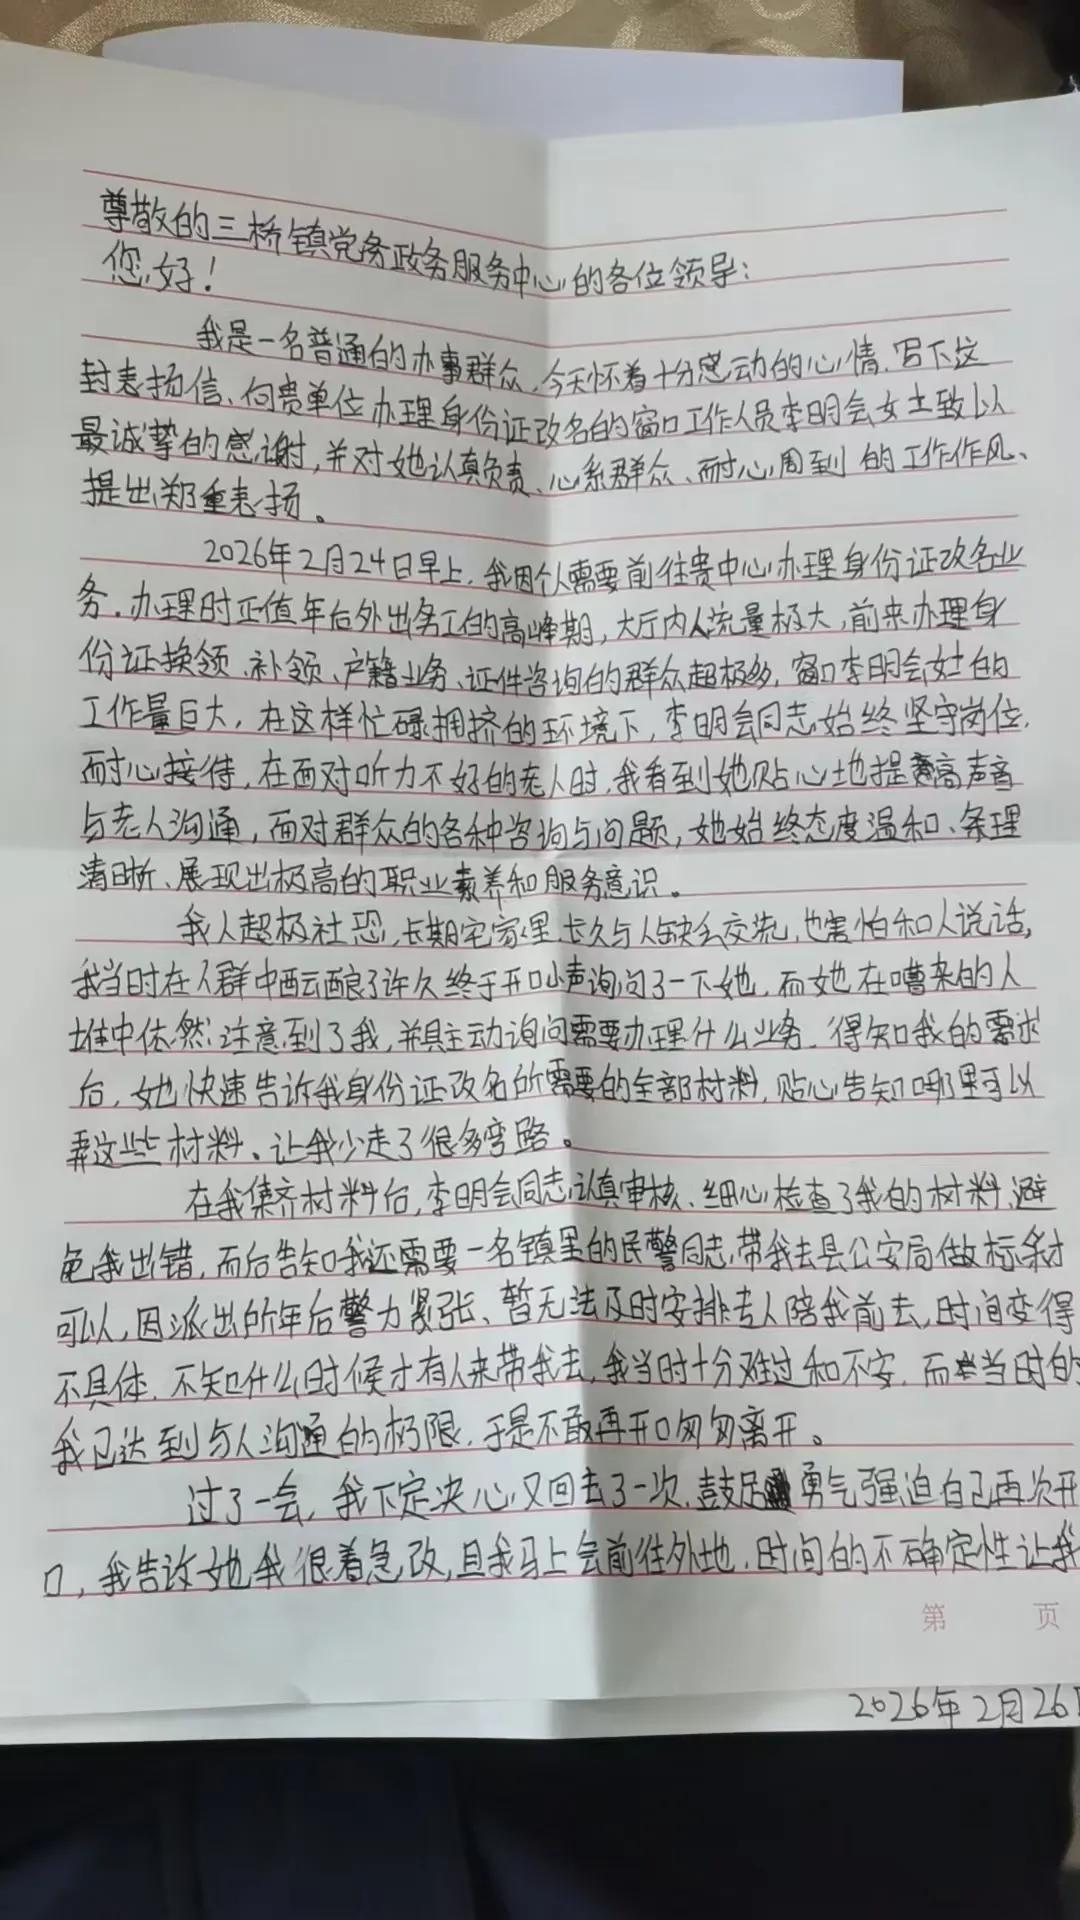 尊敬的三桥镇党务政务服务中心的各位领导：
您好！
我是一名普通的办事群众，今天怀着十分感动的心情，写下这
封表扬信、向贵单位办理身份证改名的窗口工作人员李明会女士致以
最诚挚的感谢，并对她认真负责、心系群众、耐心周到的工作作风、
提出郑重表扬。
2026年2月24日早上，我因个人需要前往贵中心办理身份证改名业
务，办理时正值年后外出务工的高峰期，大厅内人流量极大，前来办理身
份证换领、补领、户籍业务、证件咨询的群众超极多，窗口李明会女士的
工作量巨大，在这样忙碌拥挤的环境下，李明会同志始终坚守岗位，
耐心接待，在面对听力不好的老人时，我看到她贴心地提高声音
与老人沟通，面对群众的各种咨询与问题，她始终态度温和、条理
清晰、展现出极高的职业素养和服务意识。
我人超极社恐，长期宅家里，长久与人缺乏交流，也害怕和人说话，
我当时在人群中酝酿了许久终于开口小声询问了一下她，而她在嘈杂的人
堆中依然注意到了我，并且主动询问需要办理什么业务，得知我的需求
后，她快速告诉我身份证改名所需要的全部材料，贴心告知哪里可以
弄这些材料、让我少走了很多弯路。
在我集齐材料后，李明会同志认真审核、细心检查了我的材料，避
免我出错，而后告知我还需要一名镇里的民警同志带我去县公安局做标科才
可以，因派出所年后警力紧张、暂无法及时安排专人陪我前去，时间变得
不具体，不知什么时候才有人来带我去，我当时十分难过和不安，而当时的
我已达到与人沟通的极限，于是不敢再开口匆匆离开。
过了一会，我下定决心又回去了一次，鼓足勇气强迫自己再次开
口，我告诉她我很着急改，且我马上会前往外地，时间的不确定性让我
第 页
2026年2月26日